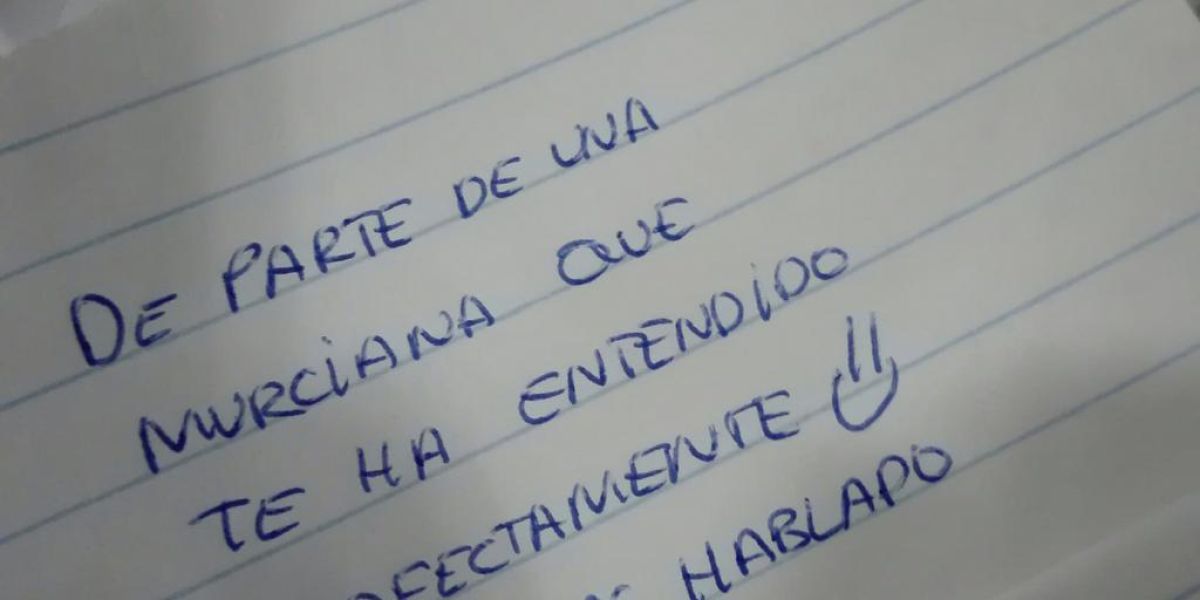 DE PARTE DE UNA
MURCIANA QUE
TE HA ENTENDIDO
FECTAMENTE
HABLADO